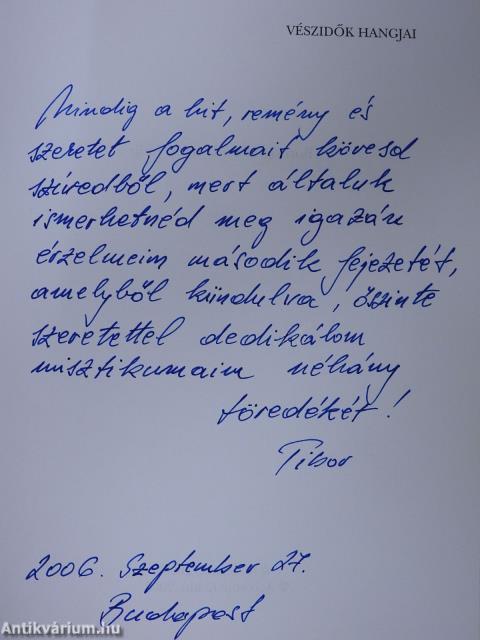 VÉSZIDŐK HANGJAI
Mindig a hit, remény és
szeretet fogalmait kövesd
szívedből, mert általuk
ismerhetnéd meg igazán
érzelmeim második fejezetét,
amelyből kiindulva, őszinte
szeretettel dedikálom
misztikumaim néhány
töredékét!
Tibor
2006. Szeptember 27.
Budapest
Antikvárium.hu